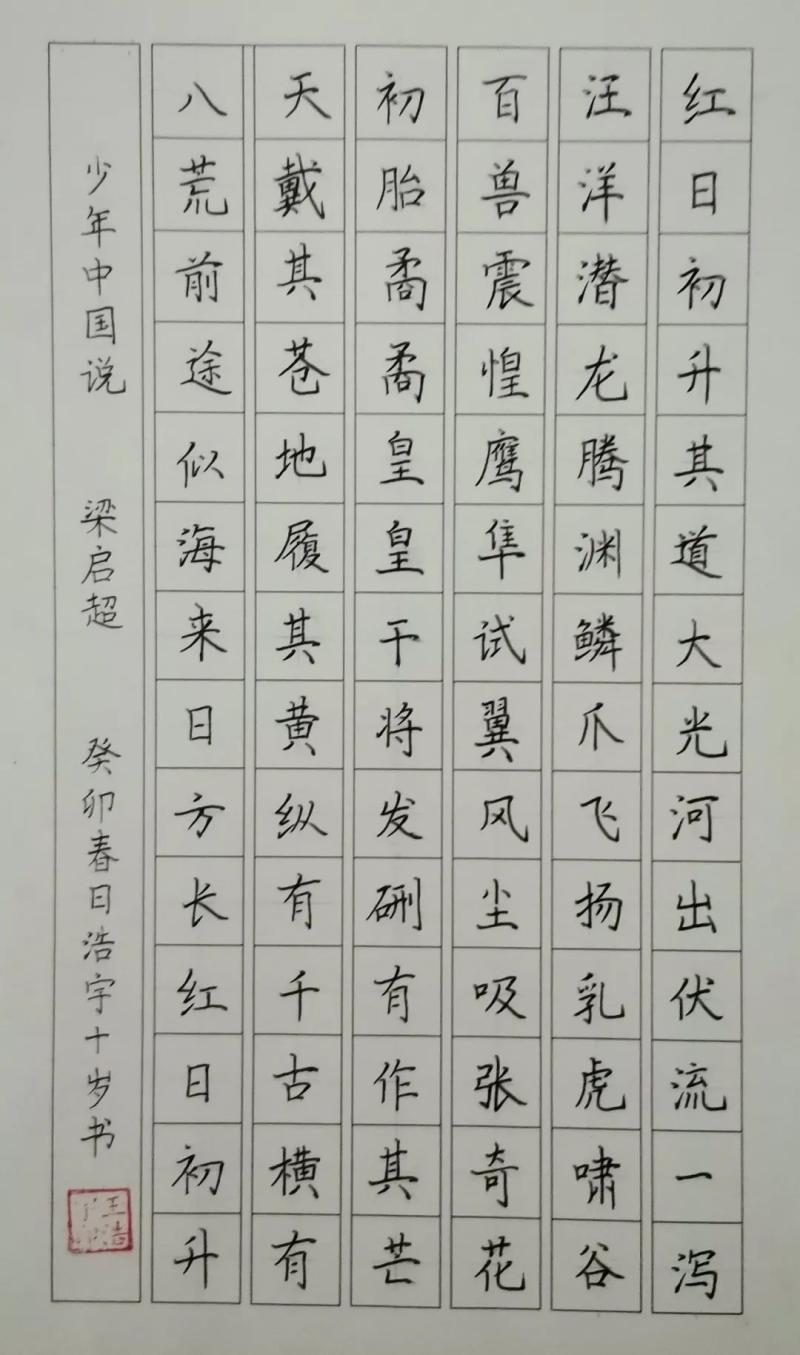 红日初升其道大光河出伏流一泻
汪洋潜龙腾渊鳞爪飞扬乳虎啸谷
百兽震惶鹰隼试翼风尘吸张奇花
初胎矞矞皇皇干将发硎有作其芒
天戴其苍地履其黄纵有千古横有
八荒前途似海来日方长红日初升
少年中国说 梁启超 癸卯春日浩宇十岁书